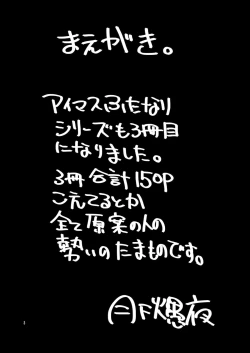 まえがき。
アイマスふたなり
シリーズも3冊目
になりました。
3冊合計150P
こえてるとか
全て原案の人の
勢いのたまものです。